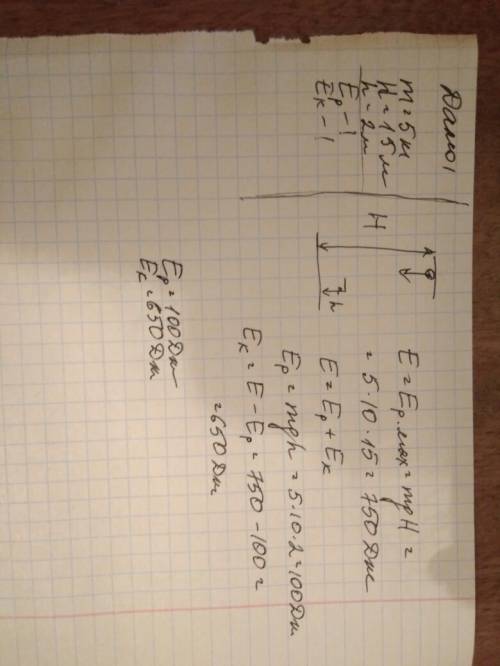 Дано:
m = 5 м
H = 15 м
h = 2 м
Ep - ?
Ek - ?
H
h
E = Ep.max = mgH =
= 5·10·15 = 750 Дж
E = Ep + Ek
Ep = mgh = 5·10·2 = 100 Дж
Ek = E - Ep = 750 - 100 =
= 650 Дж
Ep = 100 Дж
Ek = 650 Дж